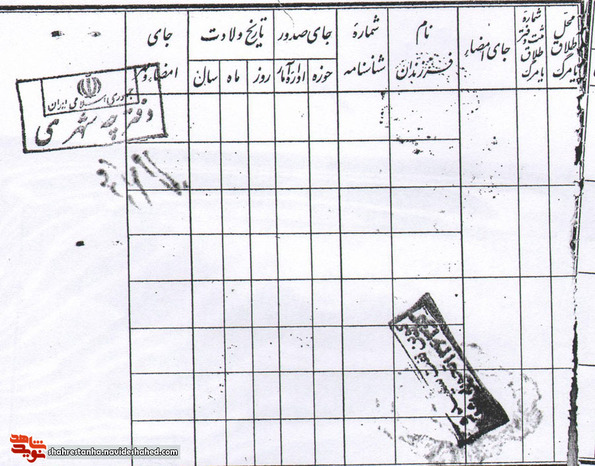 محل طلاق یا مرگ
شماره ثبت دفتر طلاق یا مرگ
جای امضاء
نام فرزندان
شمارهٔ شناسنامه
جای صدور
حوزه
اداره آمار
تاریخ ولادت
روز
ماه
سال
جای امضاء و مهر
جمهوری اسلامی ایران
دفترچه شهری
نوید شاهد
shahrestanha.navideshahed.com